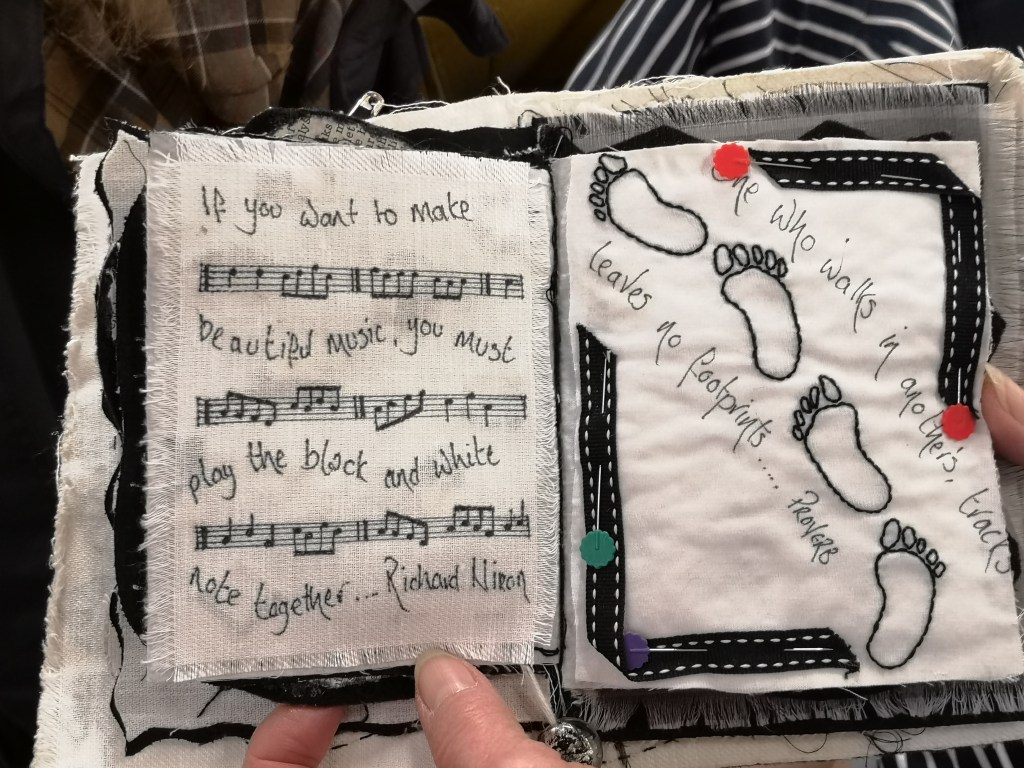 If you want to make
beautiful music, you must
play the black and white
note together... Richard Nixon
who walks in another's, tracks
leaves no footprints.....
PROVERB